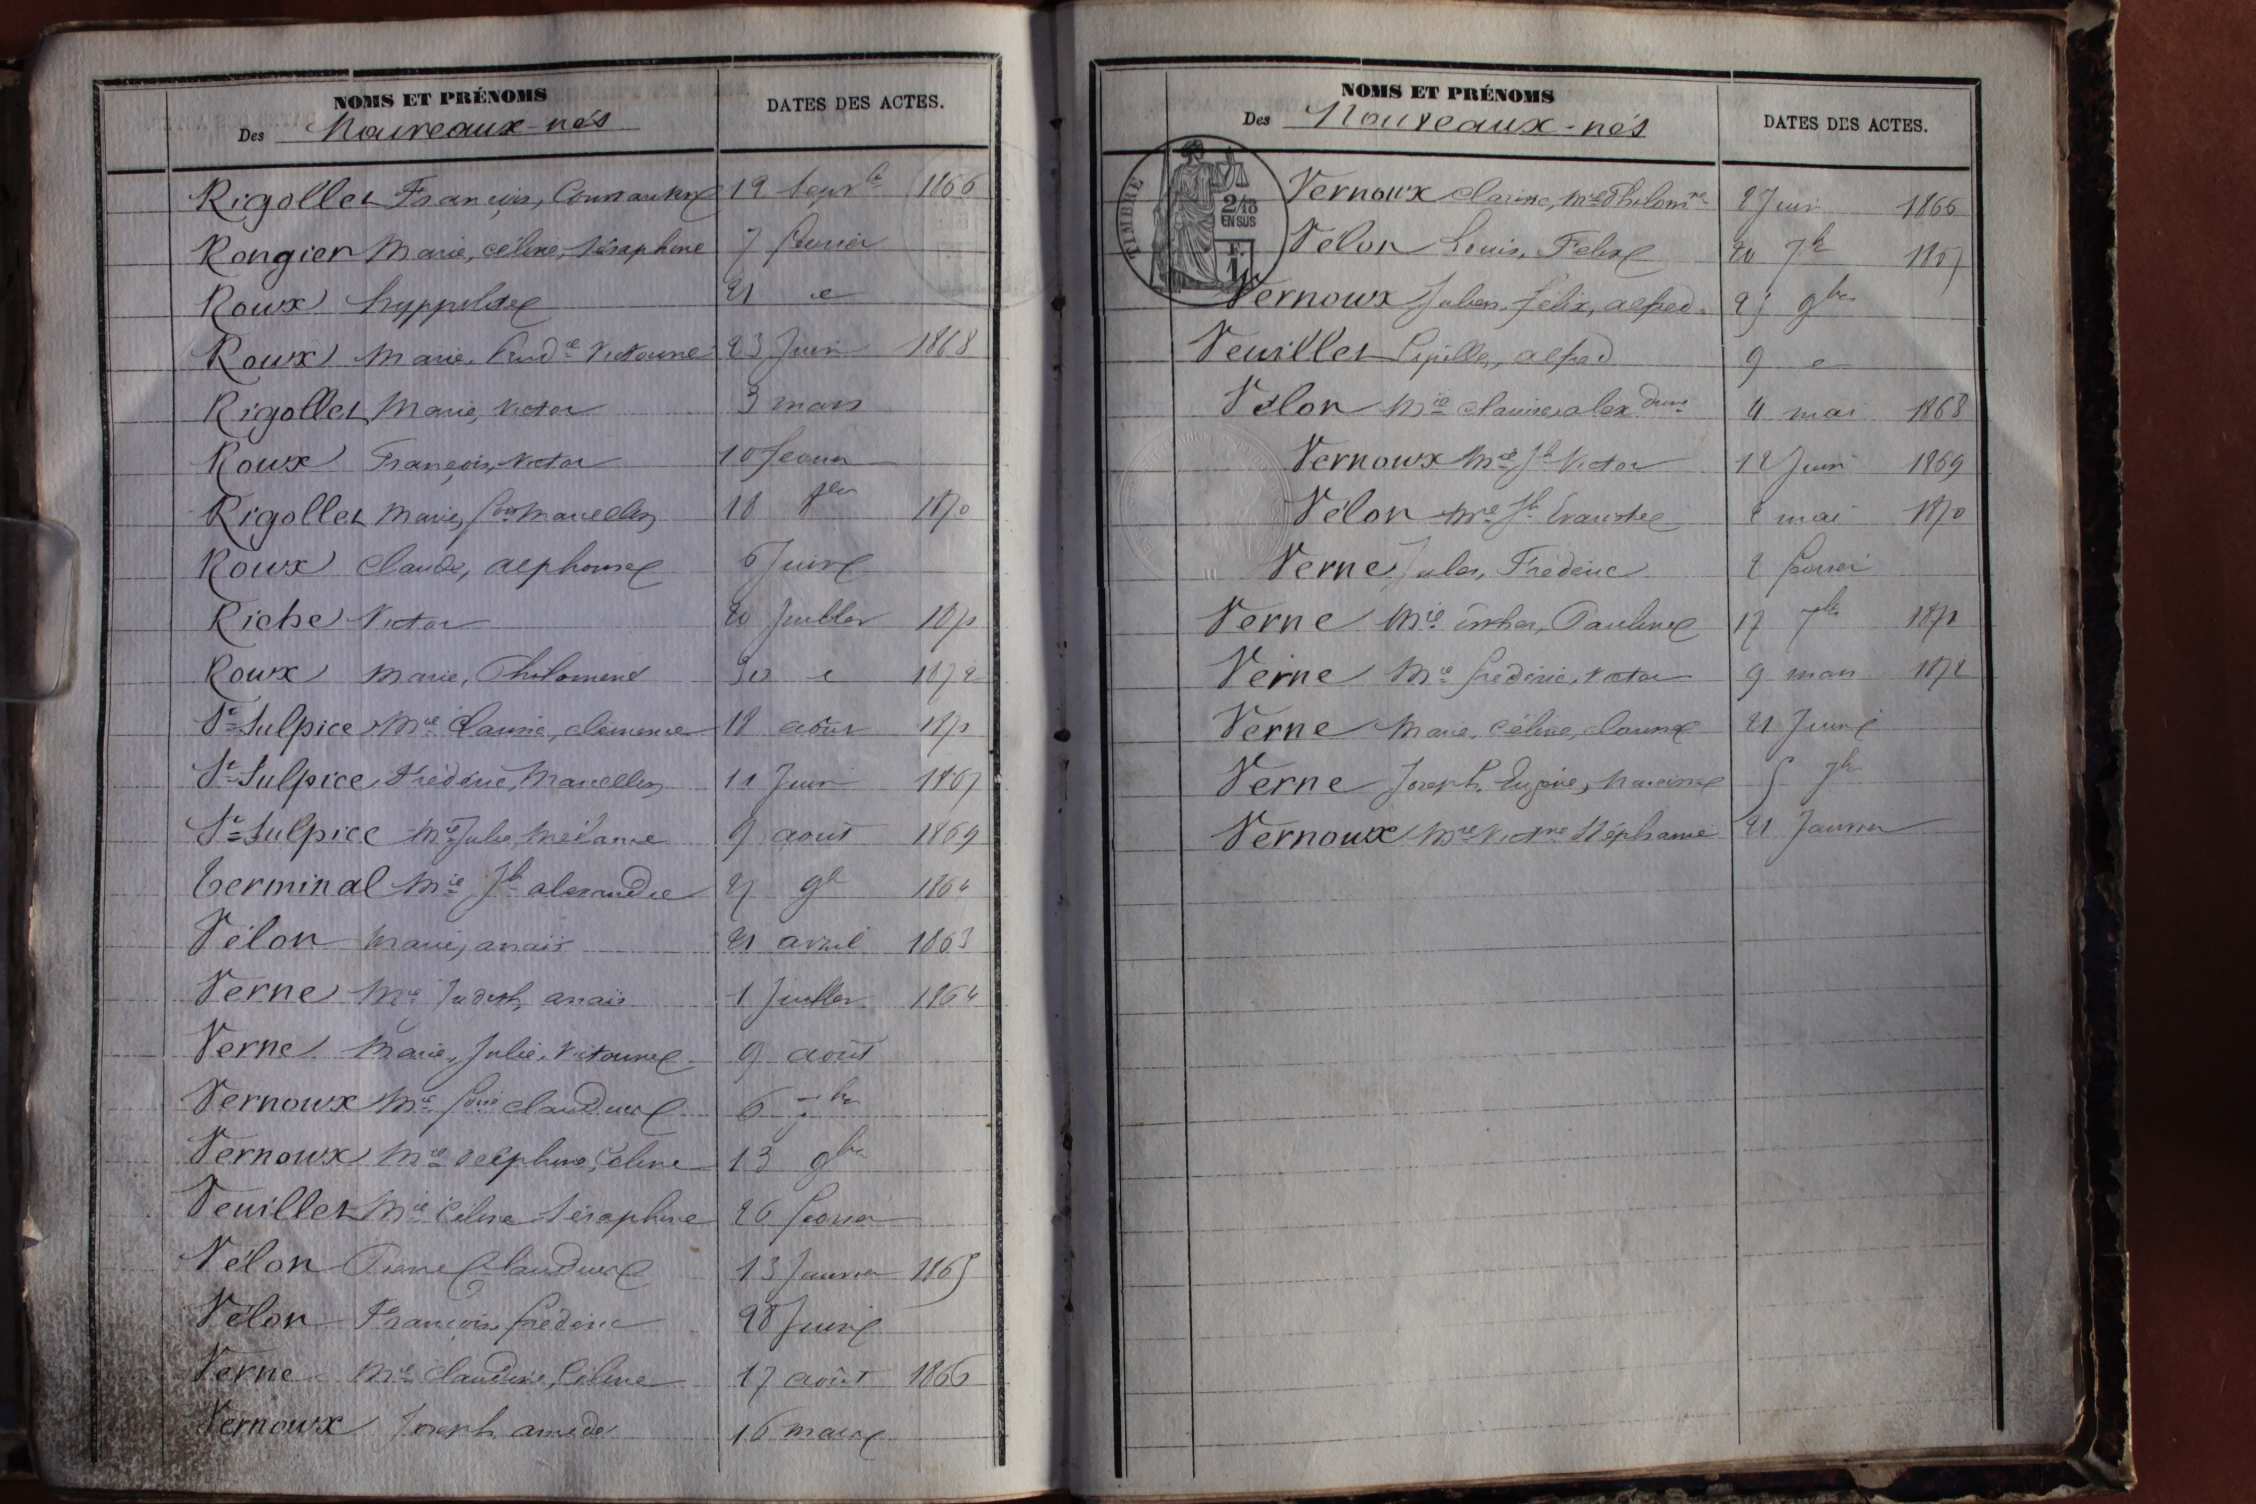 NOMS ET PRÉNOMS
Des Nouveaux-nés
DATES DES ACTES.
Rigollet François, 19 1866
Rongier Marie, céline, Séraphine 7 février
Roux hyppolite 21 "
Roux Marie, Victorine 23 Juin 1868
Rigollet Marie, Victor 3 mars
Roux François, Victor 10 février
Rigollet Marie, Marcellin 18 1870
Roux Claude, alphonse 6 Juin
Riche Victor 20 Juillet 1871
Roux Marie, Philomène 30 " 1872
St Sulpice Mie clémence 18 août 1871
St Sulpice Frédéric, Marcellin 11 Juin 1867
St Sulpice Mie Julie, Mélanie 9 août 1869
Terminal Mie Jh alexandre 27 9b 1864
Vélon Marie, anaïs 21 avril 1863
Verne Mie Judith, anaïs 1 Juillet 1864
Verne Marie, Julie, Victorine 9 août
Vernoux Mie claudine 6 7bre
Vernoux Mie delphine, Céline 13 9bre
Veuillet Mie Céline Séraphine 26 février
Vélon Pierre Claudius 13 Janvier 1865
Vélon François, frédéric 28 Juin
Verne Mie Claudine, Céline 17 août 1866
Vernoux Joseph, amédé 16 mars
NOMS ET PRÉNOMS
Des Nouveaux-nés
DATES DES ACTES.
TIMBRE
2/10
EN SUS
F.
1
Vernoux Clarisse, Mie Philomne 2 Juin 1866
Vélon Louis, Felix 20 7b 1867
Vernoux Julien, félix, alfred 25 9bre
Veuillet alfred 9 "
Vélon Mie 4 mai 1868
Vernoux Mie Jh Victor 12 Juin 1869
Vélon Mie Jh 2 mai 1870
Verne Jules, Frédéric 2 février
Verne Mie Esther, Pauline 17 7bre 1871
Verne Mie frédéric, Victor 9 mars 1872
Verne Marie, Céline, 21 Juin
Verne Joseph, Eugène, Narcisse 5 7bre
Vernoux Mie Victne Stéphanie 21 Janvier